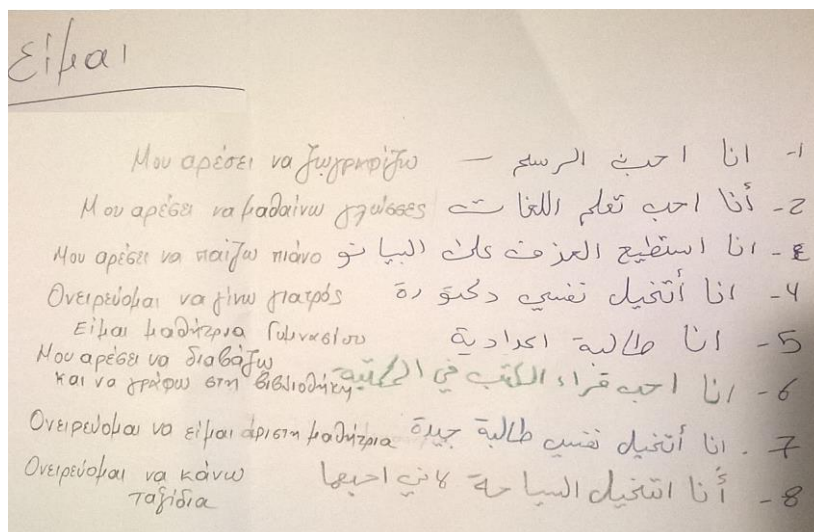 Είμαι
1- انا احب الرسم — Μου αρέσει να ζωγραφίζω
2- أنا احب تعلم اللغات Μου αρέσει να μαθαίνω γλώσσες
3- انا استطيع العزف على البيانو Μου αρέσει να παίζω πιάνο
4- انا أتخيل نفسي دكتورة Ονειρεύομαι να γίνω γιατρός
5- انا طالبة اعدادية Είμαι μαθήτρια Γυμνασίου
6- انا احب قراء الكتب في المكتبة Μου αρέσει να διαβάζω
και να γράφω στη βιβλιοθήκη
7. انا أتخيل نفسي طالبة جيدة Ονειρεύομαι να είμαι άριστη μαθήτρια
8- أنا اتخيل السياحة لاني احبها Ονειρεύομαι να κάνω
ταξίδια